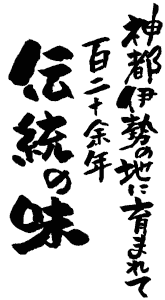 神都伊勢の地に育まれて
百二十余年
伝統の味